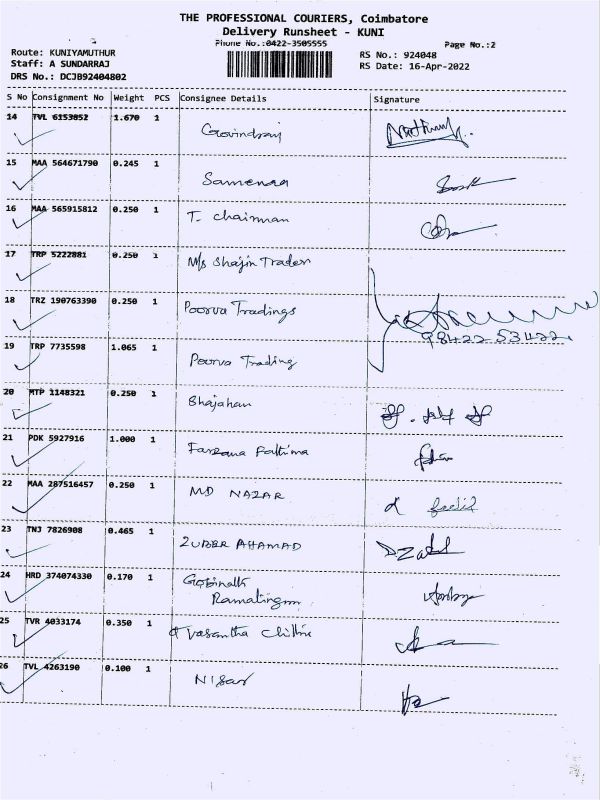 THE PROFESSIONAL COURIERS, Coimbatore
Delivery Runsheet - KUNI
Phone No.:0422-3505555
Page No.:2
Route: KUNIYAMUTHUR
RS No.: 924048
Staff: A SUNDARRAJ
RS Date: 16-Apr-2022
DRS No.: DCJB92404802
S No Consignment No Weight PCS Consignee Details Signature
14 TVL 6153852 1.670 1 Govindraj
15 MAA 564671790 0.245 1 Sameenaa
16 MAA 565915812 0.250 1 T. Chairman
17 TRP 5222881 0.250 1 M/s Shajin Trader
18 TRZ 190763390 0.250 1 Poorva Tradings
98422 53422
19 TRP 7735598 1.065 1 Poorva Trading
20 MTP 1148321 0.250 1 Bhajahan
21 PDK 5927916 1.000 1 Farzana Fathima
22 MAA 287516457 0.250 1 MD NAZAR
23 TNJ 7826908 0.465 1 ZUBER AHAMAD
24 HRD 374074330 0.170 1 Gobinath
Ramalingam
25 TVR 4033174 0.350 1 Vasantha
26 TVL 4263190 0.100 1 Nisar